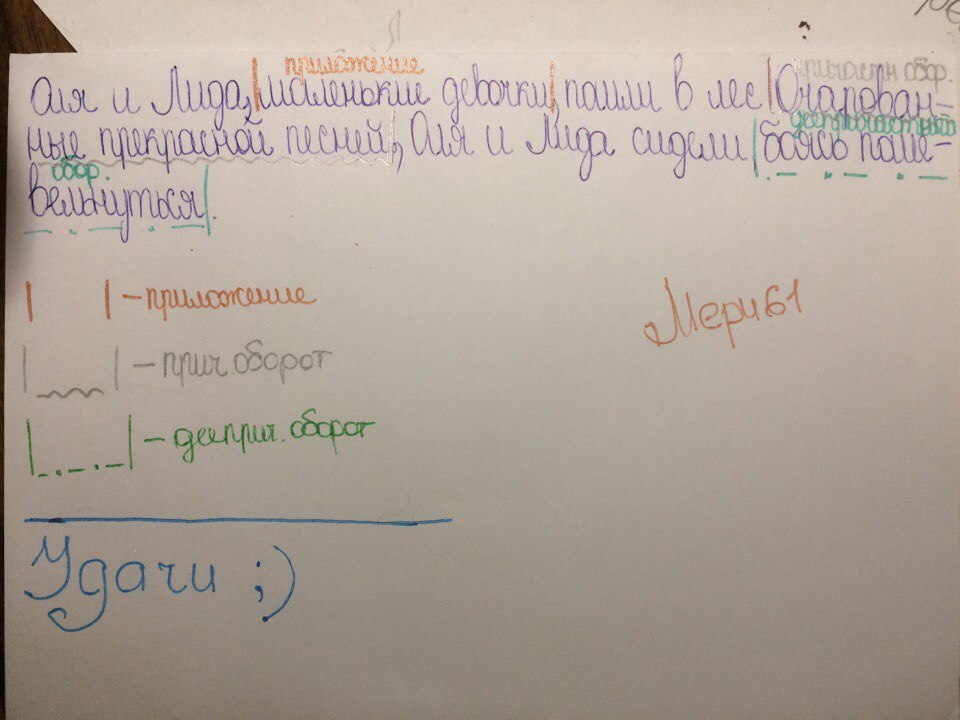 приложение
причастн обор.
Аля и Лида, маленькие девочки, пошли в лес Очарован-
деепричастный
ные прекрасной песней, Аля и Лида сидели боясь поше-
обор.
вельнуться.
— приложение
Мери61
— прич. оборот
— дееприч. оборот
Удачи ;)